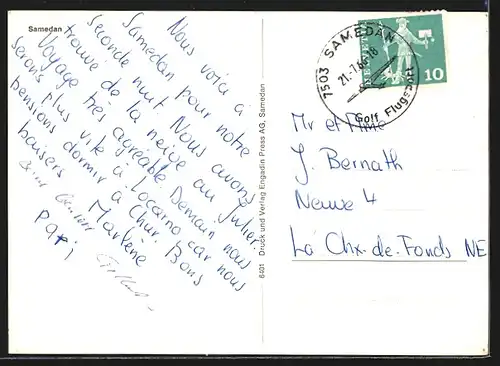 Samedan
Nous voici à
Samedan pour notre
seconde nuit. Nous avons
trouvé de la neige au Julier
Voyage très agréable. Demain nous
serons plus vite à Locarno car nous
pensions dormir à Chur. Bons
baisers Marlène
Papi
6401 Druck und Verlag Engadin Press AG, Samedan
7503 SAMEDAN
Golf Flugsport
HELVETIA
10
Mr et Mme
J. Bernath
Neuve 4
La Chx-de-Fonds NE